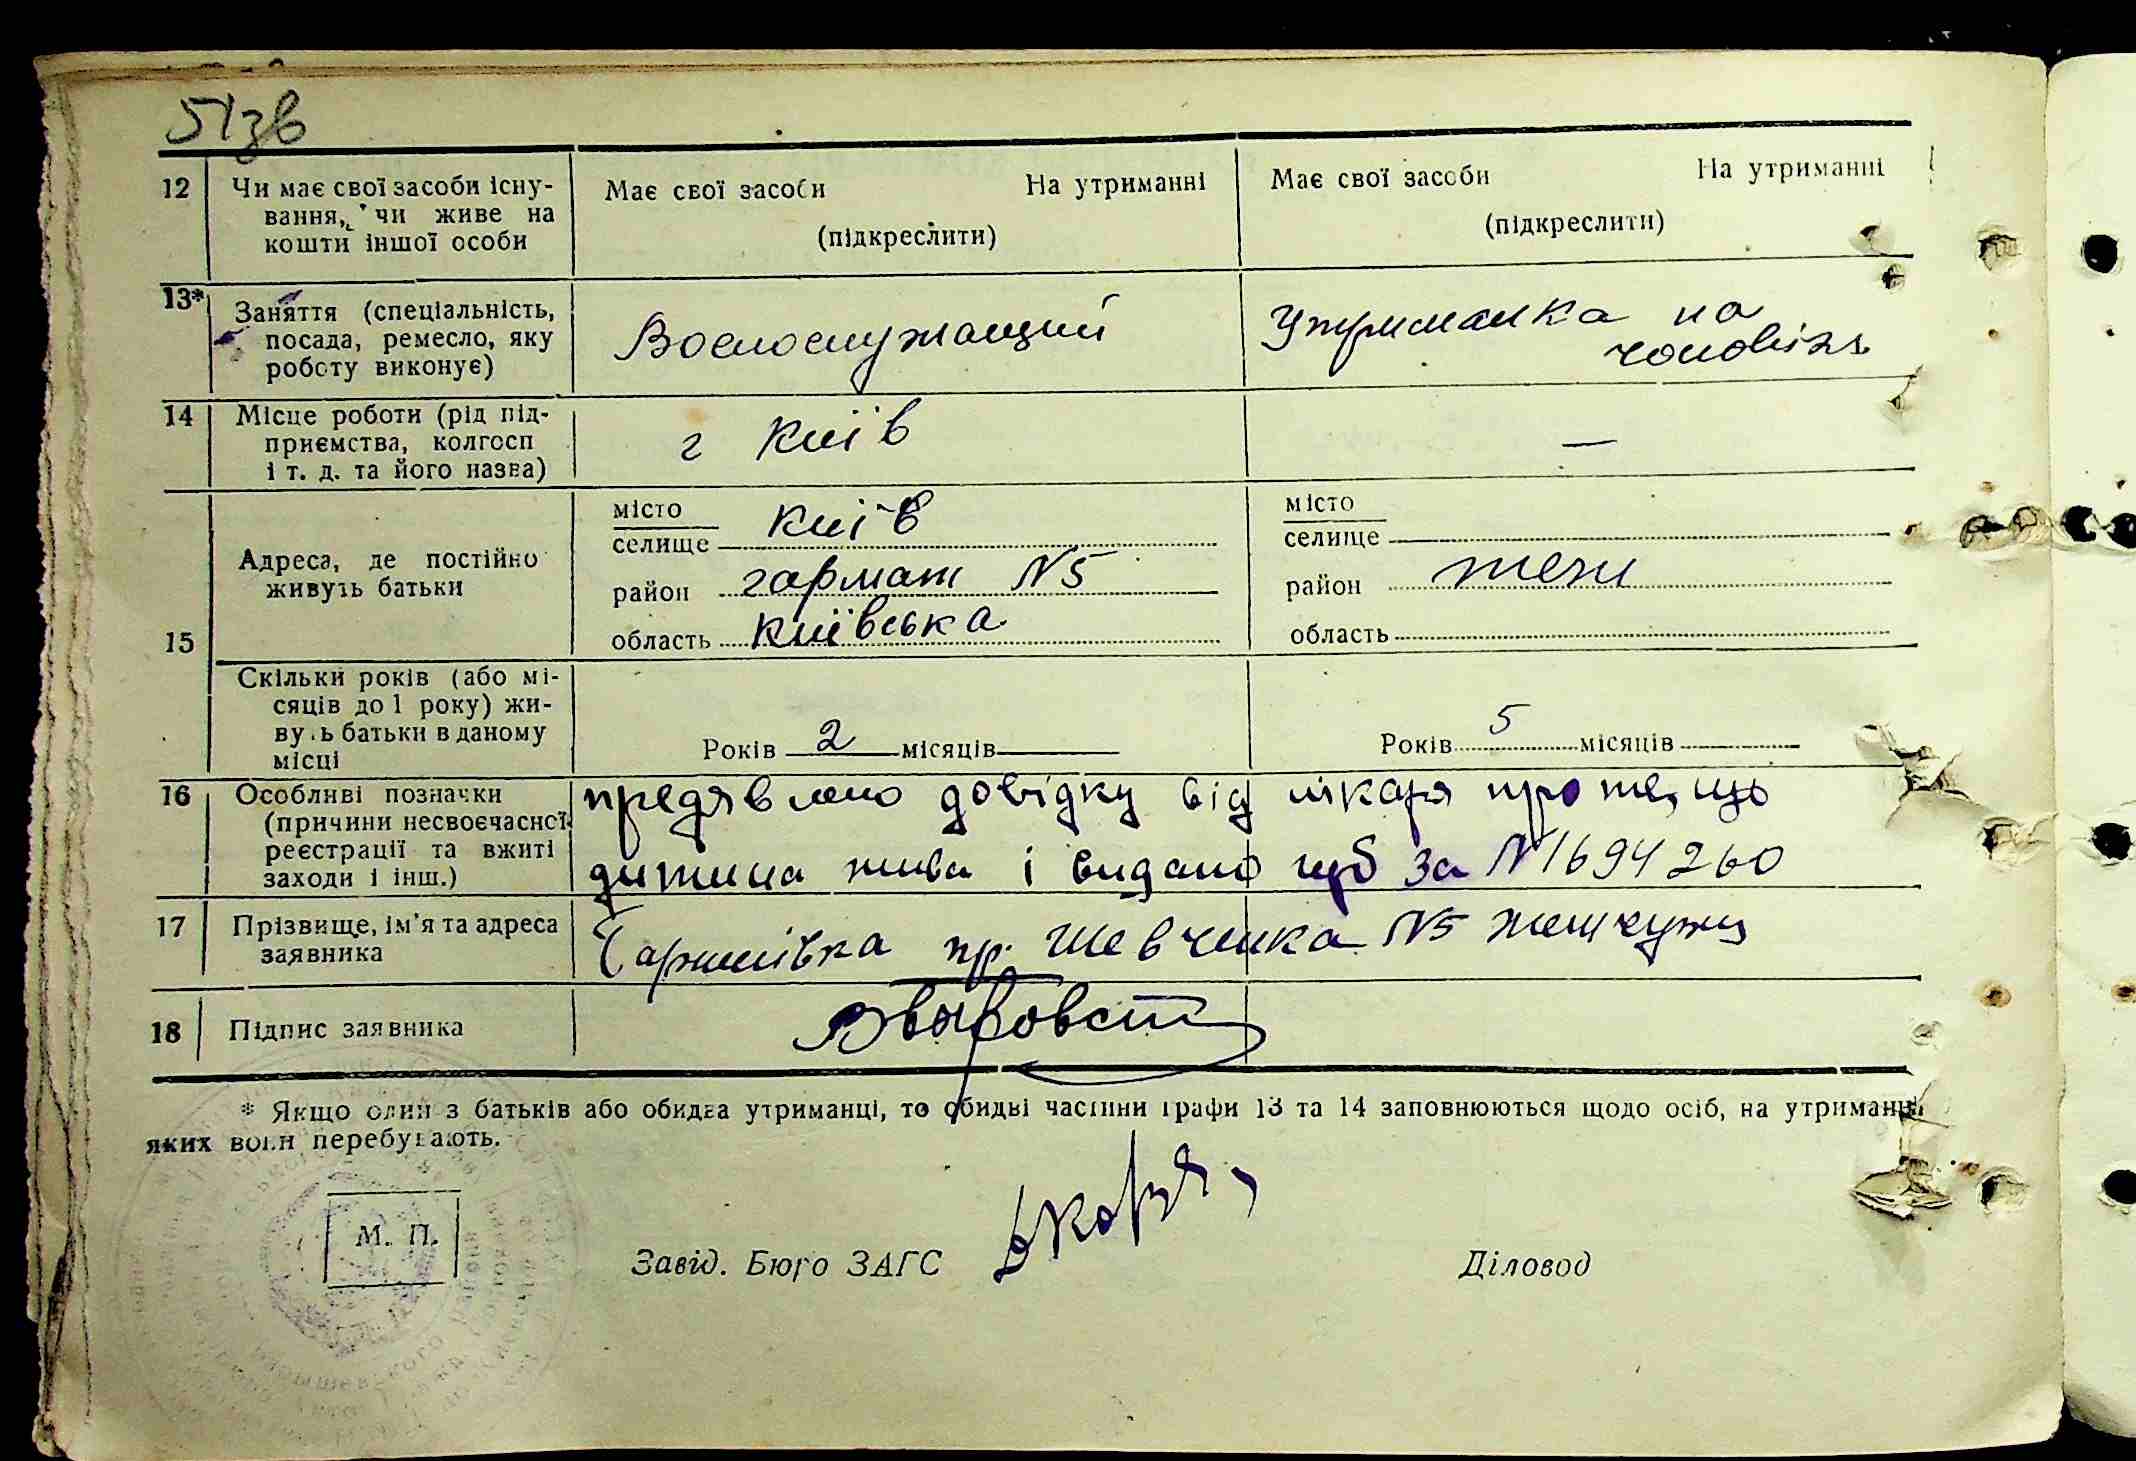 51зв
12 Чи має свої засоби існу-
вання, чи живе на
кошти іншої особи
Має свої засоби На утриманні
(підкреслити)
Має свої засоби На утриманні
(підкреслити)
13* Заняття (спеціальність,
посада, ремесло, яку
роботу виконує)
Воєнослужащий
Утриманка на
чоловікі
14 Місце роботи (рід під-
приємства, колгосп
і т. д. та його назва)
г Київ
—
15 Адреса, де постійно
живуть батьки
місто
селище Київ
район гармат N5
область Київська
місто
селище
район теж
область
Скільки років (або мі-
сяців до 1 року) жи-
вуть батьки в даному
місці
Років 2 місяців
Років 5 місяців
16 Особливі позначки
(причини несвоєчасної
реєстрації та вжиті
заходи і інш.)
предявлено довідку від лікаря про те, що
дитина жива і видано за N 1694260
17 Прізвище, ім'я та адреса
заявника
пр. Шевченка N5
18 Підпис заявника
* Якщо один з батьків або обидва утриманці, то обидві частини графи 13 та 14 заповнюються щодо осіб, на утриманні
яких вони перебувають.
М. П.
Завід. Бюро ЗАГС
Діловод